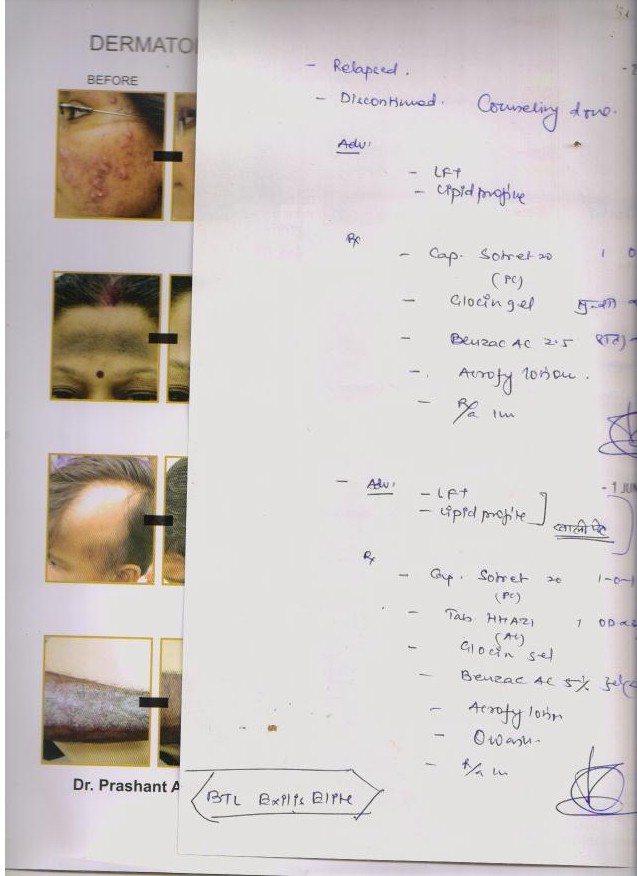 DERMATO
BEFORE
- Relapsed.
- Discontinued. Counseling done.
Adv:
- LFT
- Lipid profile
Rx
- Cap. Sotret 20 1 0
(PC)
- Glocin gel सुबह
- Benzac AC 2.5 रात)
- Acrofy lotion.
- R/a 1m
- Adv: - 1 JUN
- LFT
- Lipid profile
खाली पेट
Rx
- Cap. Sotret 20 1-0-1
(PC)
- Tab. HHAZI 1 OD x3
(AC)
- Glocin gel
- Benzac AC 5% gel
- Acrofy lotion
- Owash
- R/a 1m
Dr. Prashant A
BTL Exilis Elite